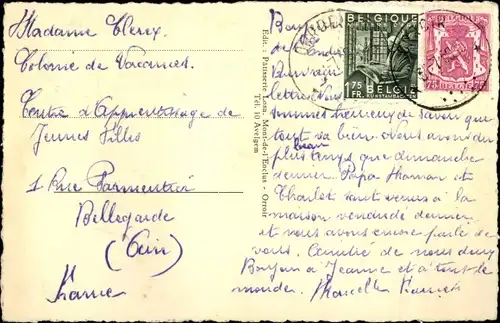 Madame Clerx
Colonie de Vacances
Centre d'Apprentissage de
Jeunes Filles
1 Rue Parmentier
Bellegarde
(Ain)
France
Edit.: Patisserie Losa, Mont-de-l'Enclus - Orroir
Tél. 10 Avelgem
BELGIQUE
1.75 FR.
BELGIE
KUNSTAMBACHTEN
75 75
Bonjour
lettre Nous
sommes heureux de savoir que
tout va bien. Nous avons du
beau
plus temps que dimanche
dernier. Papa Maman et
Charlot sont venus à la
maison vendredi dernier
et nous avons encore parlé de
vous. Amitié de nous deux
Bonjour à Jeanne et à tout le
monde. Marcelle